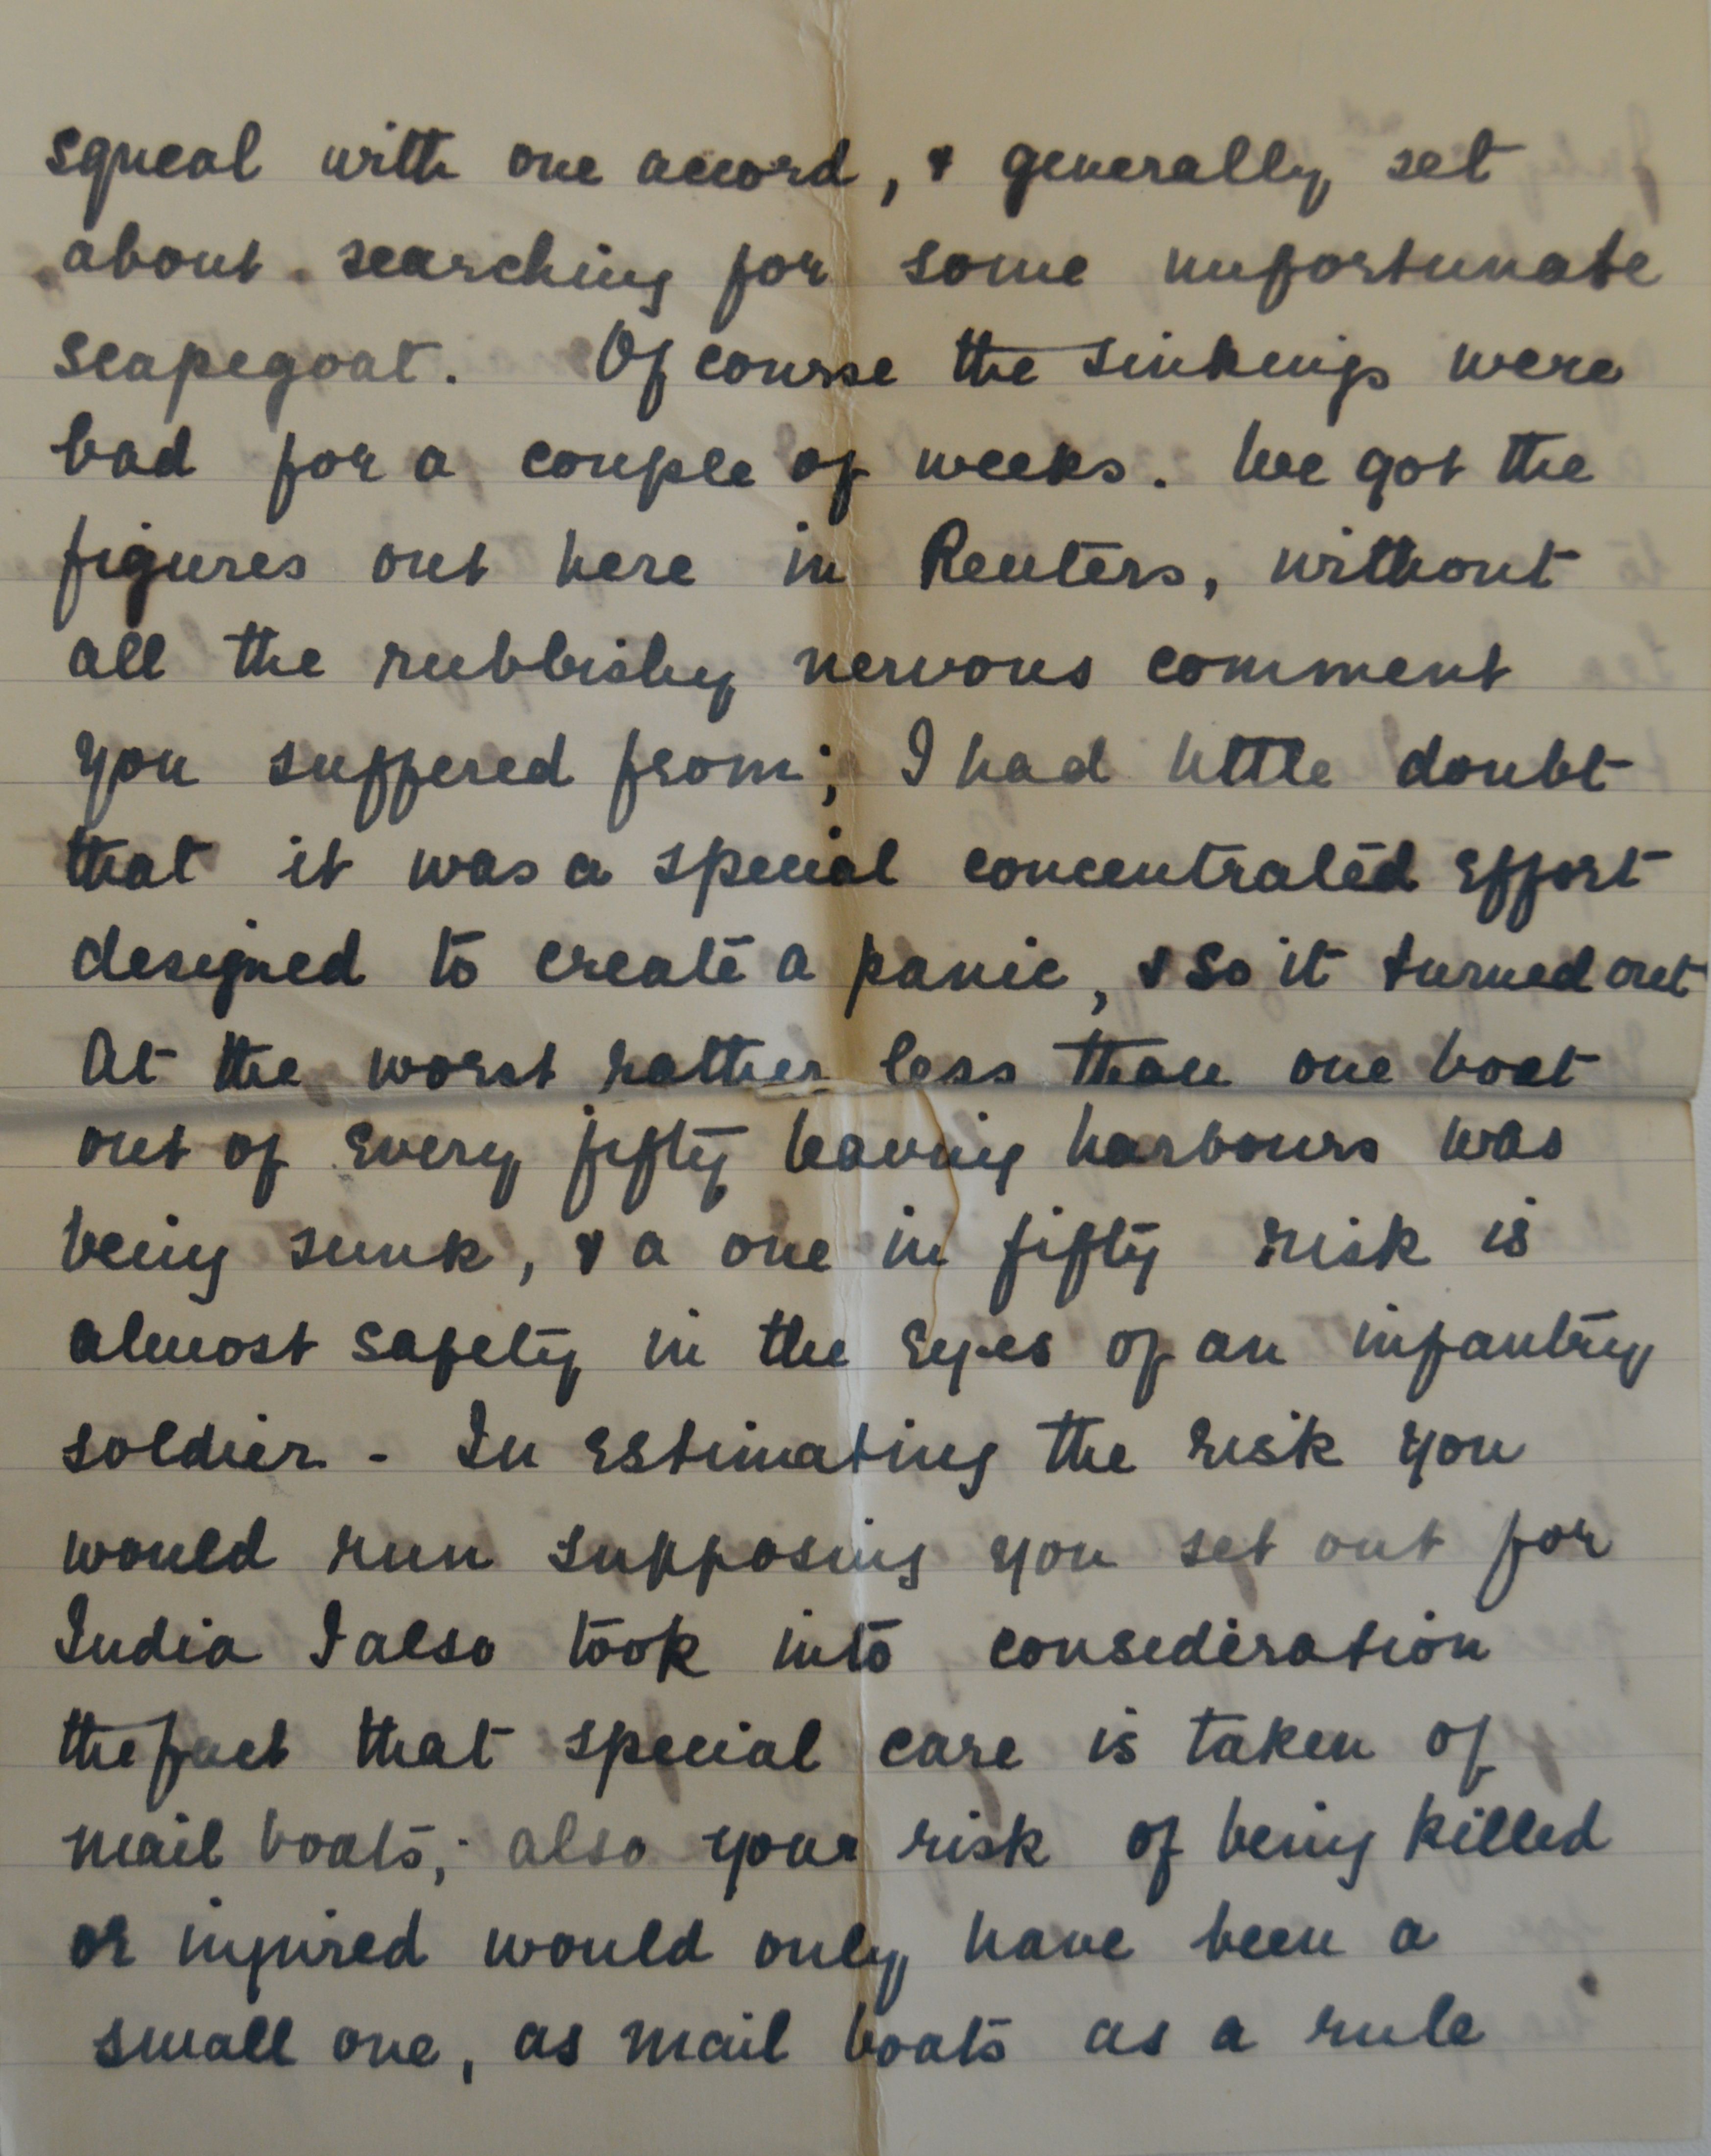 squeal with one accord, & generally set
about searching for some unfortunate
scapegoat. Of course the sinkings were
bad for a couple of weeks. We got the
figures out here in Reuters, without
all the rubbishy nervous comment
you suffered from; I had little doubt
that it was a special concentrated effort
designed to create a panic, & so it turned out
At the worst rather less than one boat
out of every fifty leaving harbours was
being sunk, & a one in fifty risk is
almost safety in the eyes of an infantry
soldier. - In estimating the risk you
would run supposing you set out for
India I also took into consideration
the fact that special care is taken of
mail boats; also your risk of being killed
or injured would only have been a
small one, as mail boats as a rule